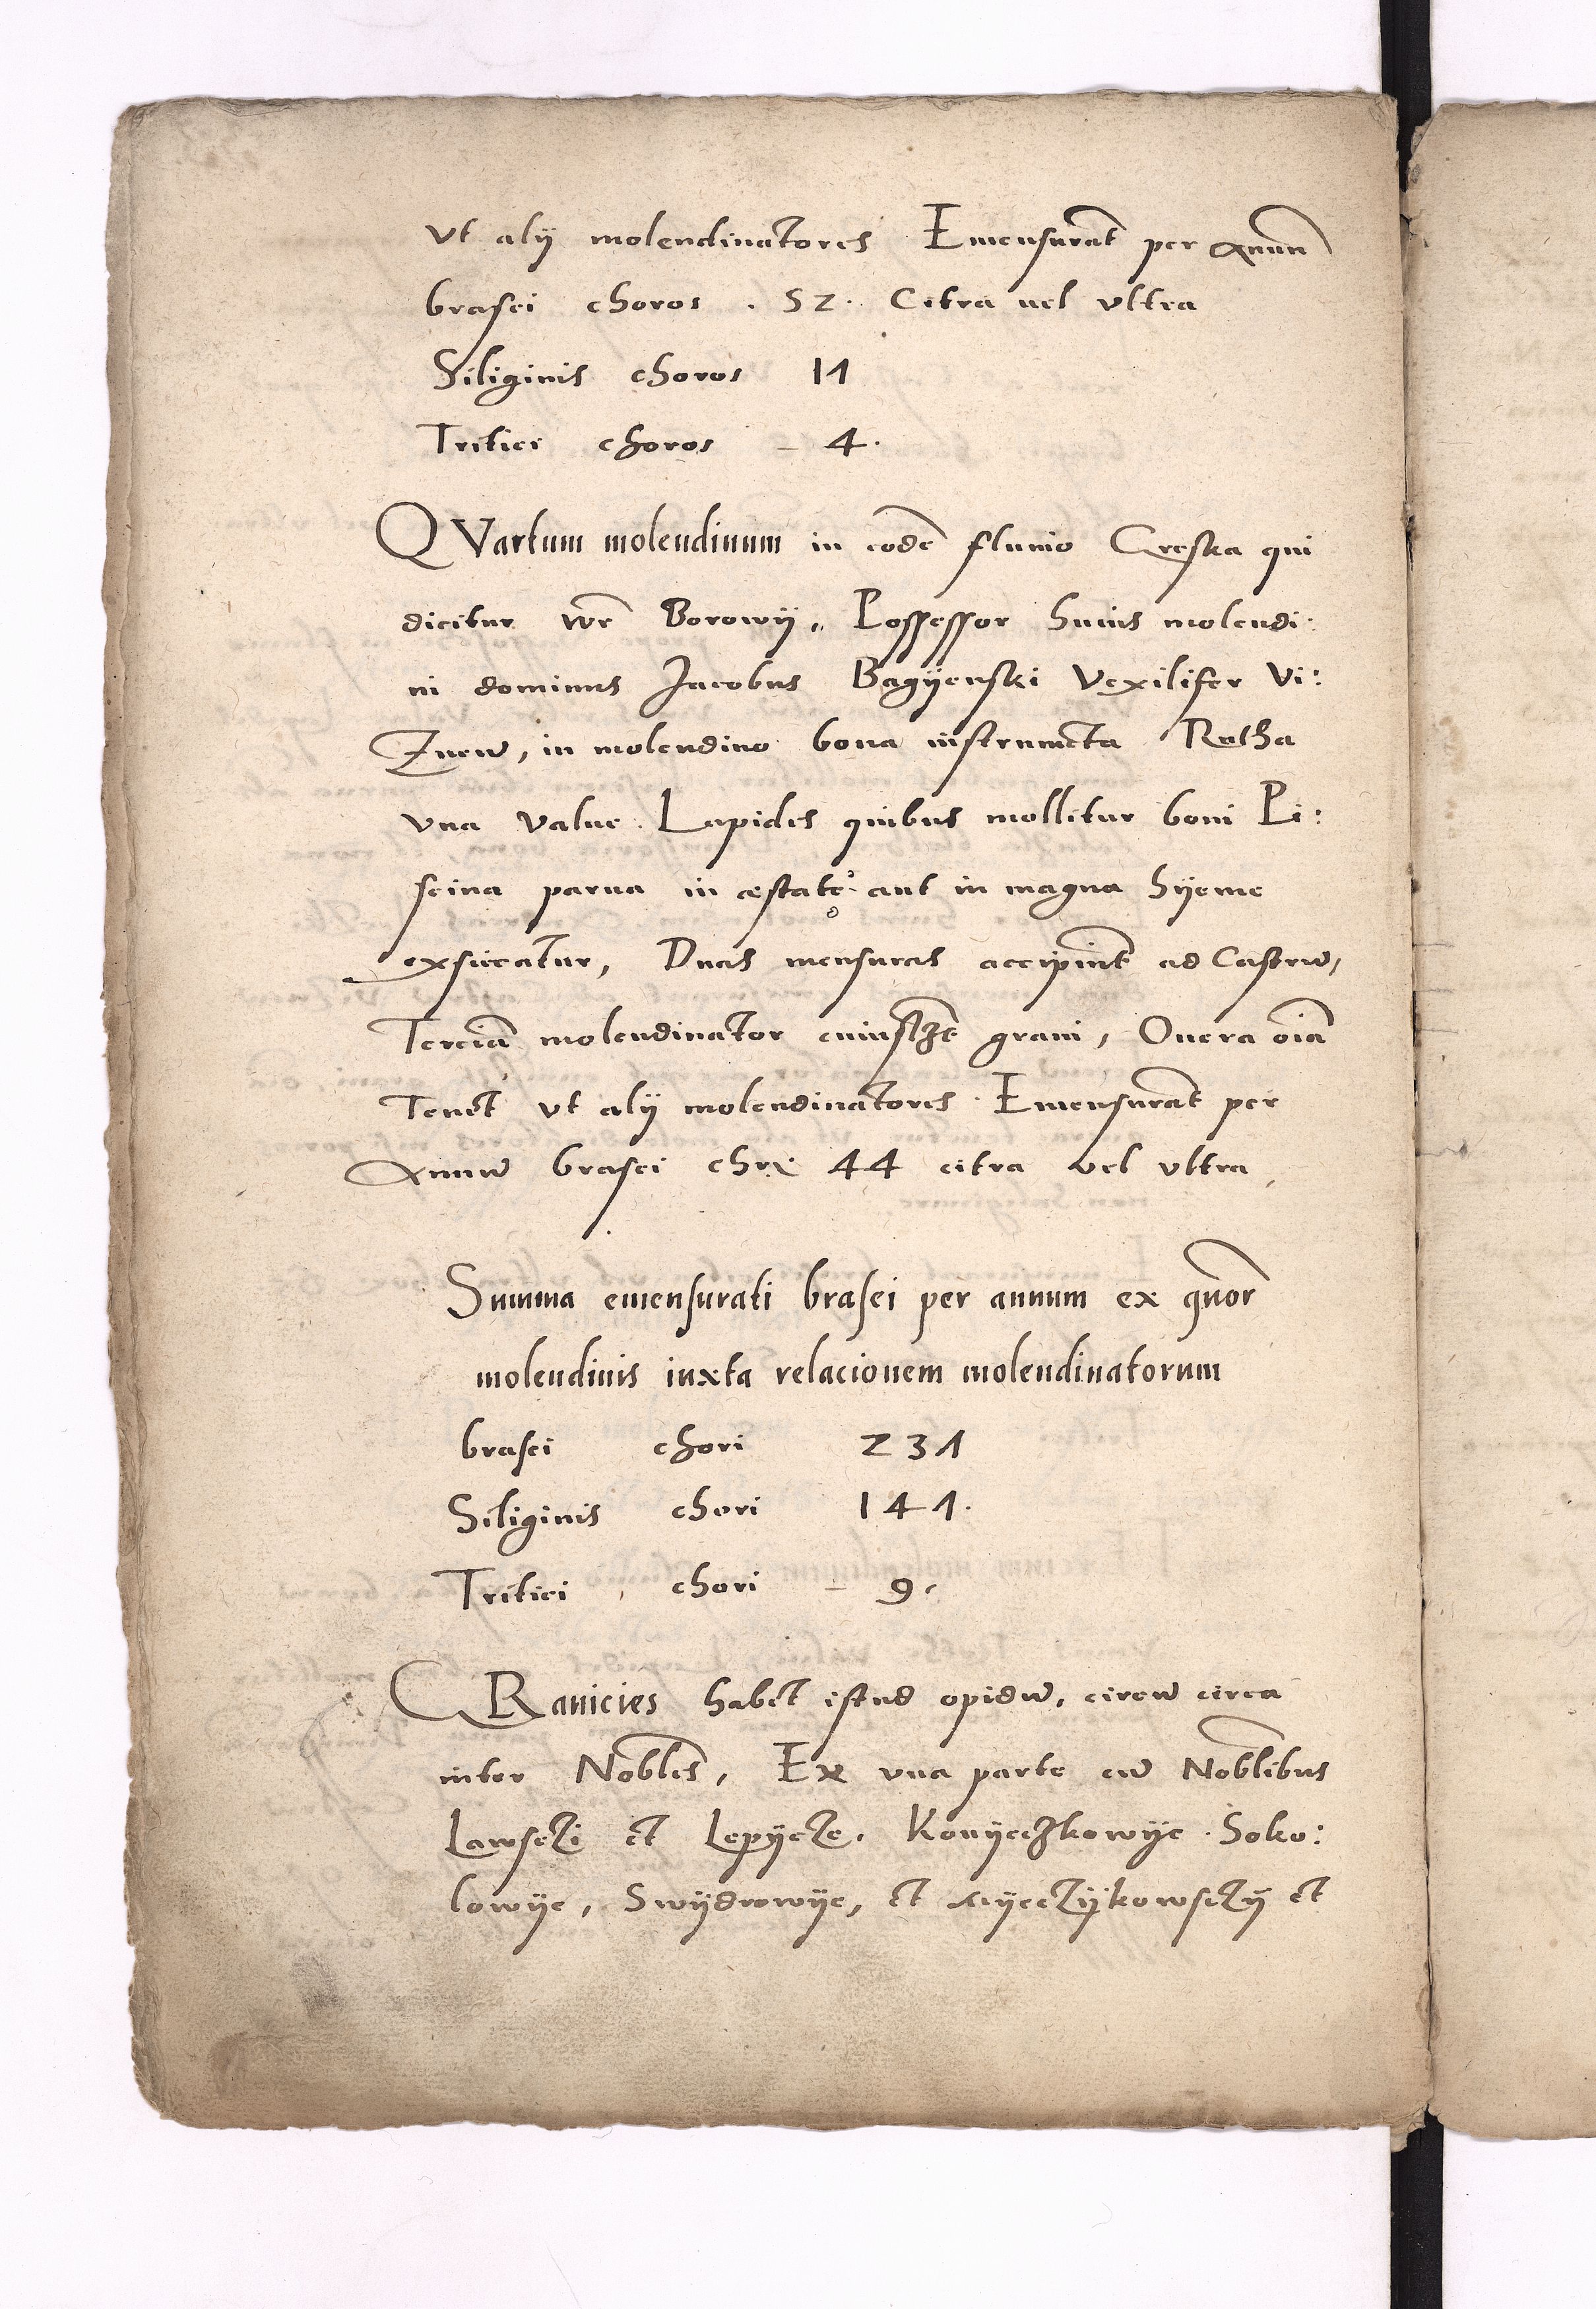 Vt alÿ molendinatores Emensurāt per Annū
brasei choros . 52. Citra uel vltra
Siliginis choros 11
Tritici choros – 4.
QVartum molendinum in eodē fluuio Creska qui
dicitur wē Borowÿ, Possessor huius molendi:
ni dominus Jacobus Bagÿenski Vexilifer Vi:
Znēn, in molendino bona instrumēta Rotha
vna value. Lapides quibus mollitur boni Pi:
scina parua in æstate aut in magna hÿeme
exsiccatur, Duas mensuras accipiūt ad Castrū,
Terciā molendinator cuiuslȝt grani, Onera oīa
Tenēt vt alÿ molendinatores. Emensurāt per
Annū brasei chri 44 citra vel vltra
Summa emensurati brasei per annum ex quor
molendinis iuxta relacionem molendinatorum
brasei chori 231
Siliginis chori 141.
Tritici chori – 9.
GRanicies habēt istud opidū, circū circa
inter Nobles, Ex vna parte cū Noblibus
Lawsczi et Lepÿcze, Konÿeczkowÿe. Soko:
lowÿe, Swÿdrowÿe, et et